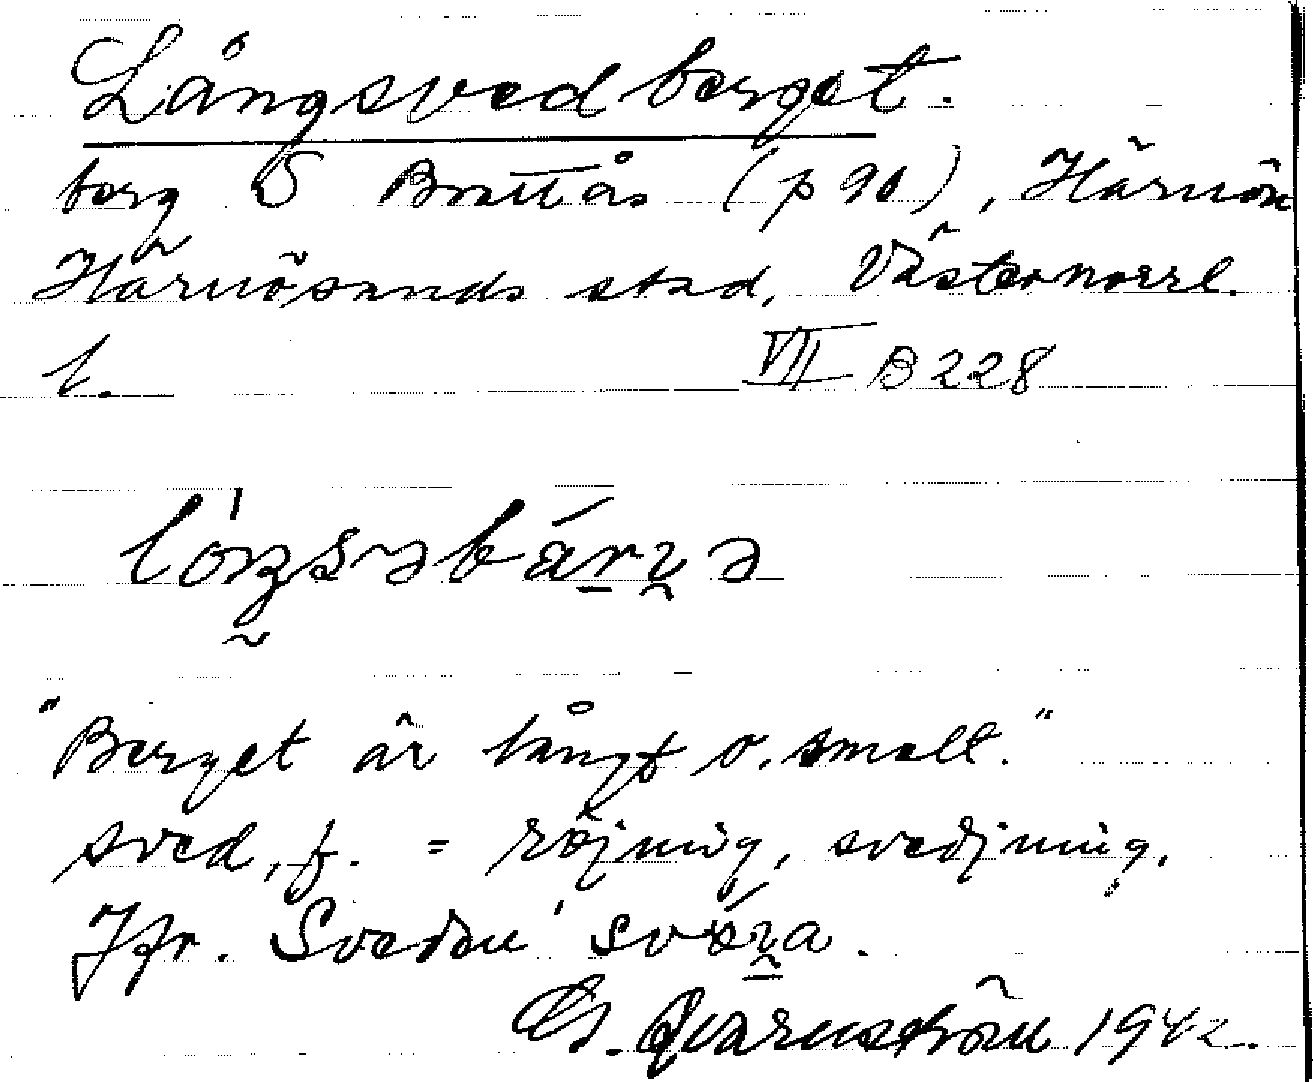 Långsvedberget.
berg S Brattås (p 90), Härnön
Härnösands stad, Västernorrl.
l. VII B 228
"Berget är långt o. smalt."
sved, f. = röjning, svedjning.
Jfr. Sveden
G. Qvarnström 1942.